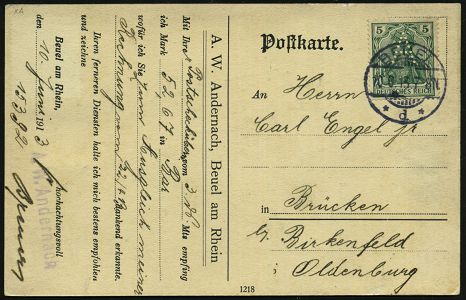 A. W. Andernach, Beuel am Rhein
Mit Ihrer Postanweisung vom 3. ds. Mts empfing
ich Mark 52 67 in Bar
wofür ich Sie zum Ausgleich meiner
Rechnung vom dankend erkannte.
Ihren ferneren Diensten halte ich mich bestens empfohlen
und zeichne
Beuel am Rhein, hochachtungsvoll
den 10. Juni 1913
A.W. Andernach
15392
Postkarte.
5 5
DEUTSCHES REICH
BEUEL
d
An Herrn
Carl Engel jr
in Brücken
b. Birkenfeld
i Oldenburg
1218